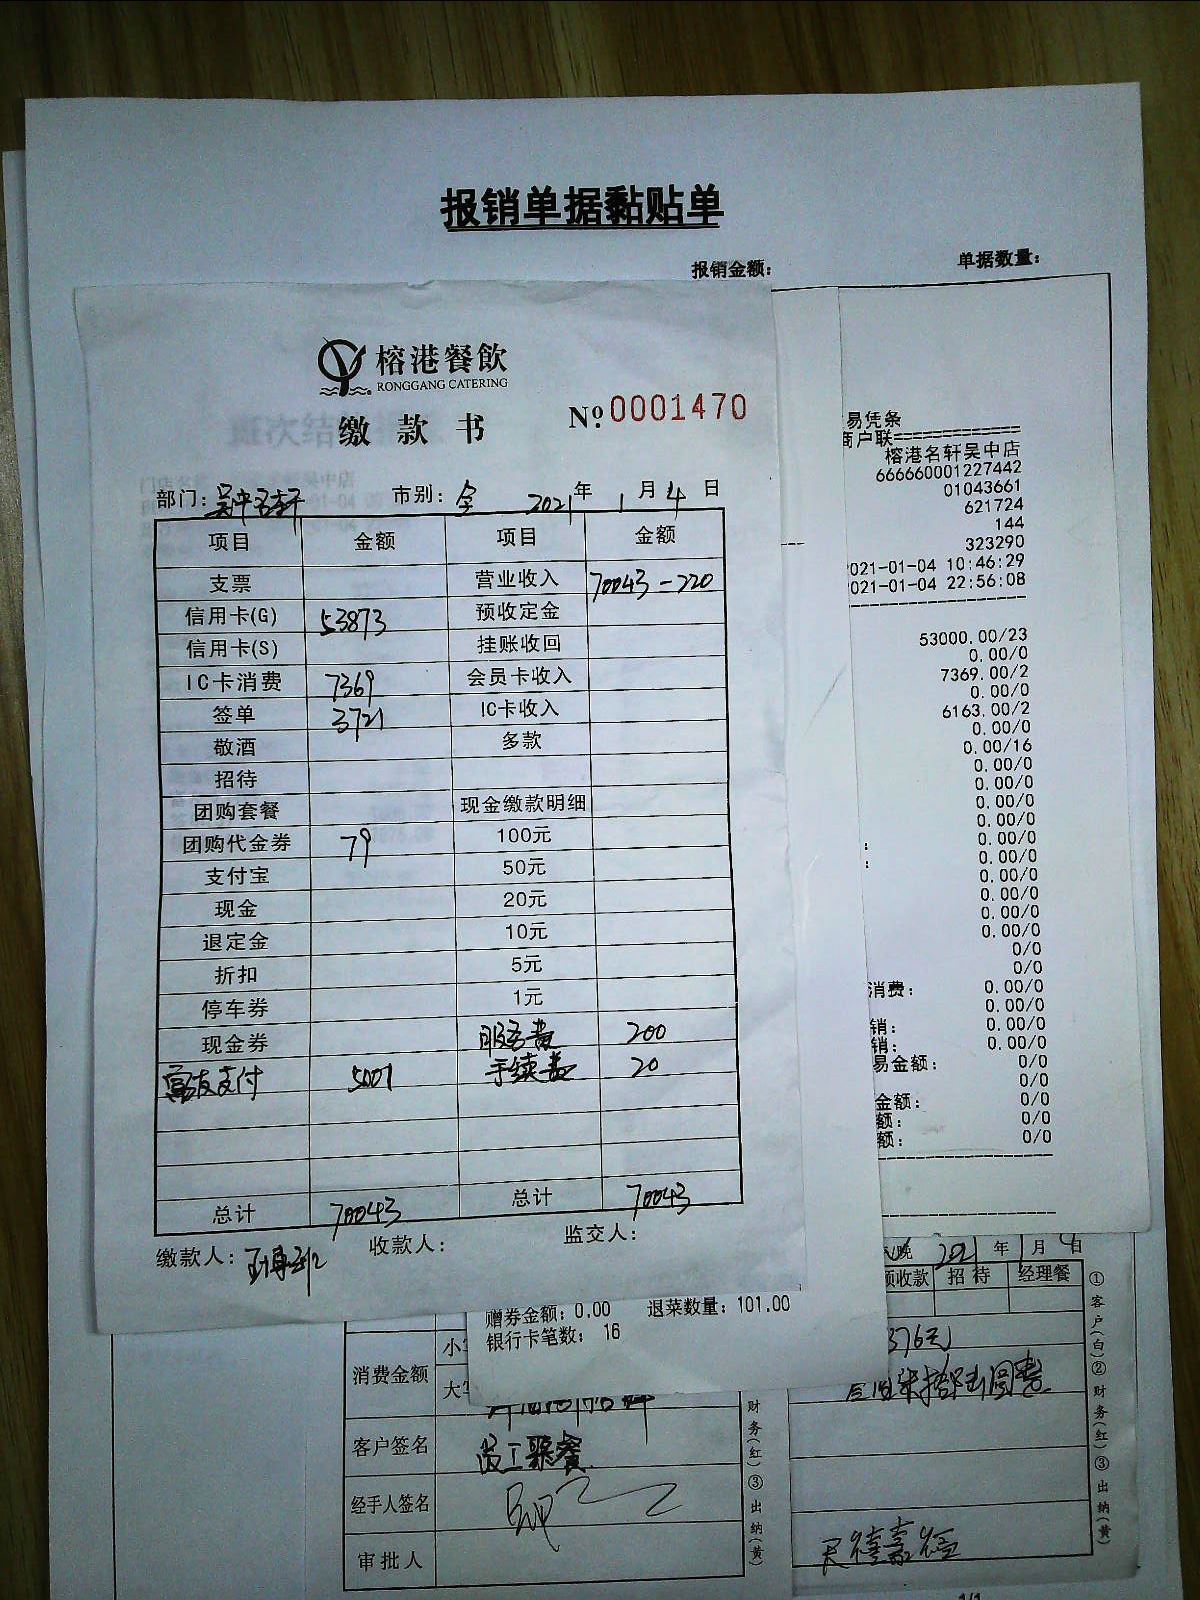 报销单据黏贴单
报销金额： 单据数量：
榕港餐飲
RONGGANG CATERING
缴款书 №0001470
部门：吴中名轩 市别：全 2021年1月4日
项目 金额 项目 金额
支票 营业收入 70043-220
信用卡(G) 53873 预收定金
信用卡(S) 挂账收回
IC卡消费 7369 会员卡收入
签单 3721 IC卡收入
敬酒 多款
招待
团购套餐 现金缴款明细
团购代金券 79 100元
支付宝 50元
现金 20元
退定金 10元
折扣 5元
停车券 1元
现金券 服务费 200
富友支付 5001 手续费 20
总计 70043 总计 70043
缴款人： 收款人： 监交人：
易凭条
商户联=============
榕港名轩吴中店
666660001227442
01043661
621724
144
323290
2021-01-04 10:46:29
2021-01-04 22:56:08
53000.00/23
0.00/0
7369.00/2
0.00/0
6163.00/2
0.00/0
0.00/16
0.00/0
0.00/0
0.00/0
0.00/0
0.00/0
0.00/0
0.00/0
0.00/0
0.00/0
0.00/0
0/0
0/0
消费： 0.00/0
0.00/0
销： 0.00/0
销： 0.00/0
易金额： 0/0
0/0
金额： 0/0
额： 0/0
额： 0/0
赠券金额：0.00 退菜数量：101.00
银行卡笔数： 16
晚 2021年1月4日
预收款 招待 经理餐
376元
消费金额 小 大
客户签名 员工聚餐
经手人签名
审批人
财务(红)③出纳(黄)
①客户(白)②财务(红)③出纳(黄)
1/1